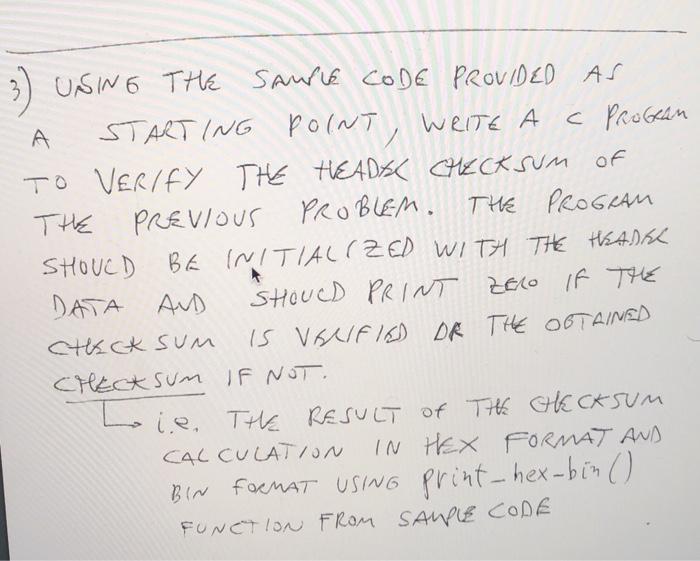 3) USING THE SAMPLE CODE PROVIDED AS
A STARTING POINT, WRITE A C PROGRAM
TO VERIFY THE HEADER CHECKSUM OF
THE PREVIOUS PROBLEM. THE PROGRAM
SHOULD BE INITIALIZED WITH THE HEADER
DATA AND SHOULD PRINT ZERO IF THE
CHECKSUM IS VERIFIED OR THE OBTAINED
CHECKSUM IF NOT.
i.e. THE RESULT OF THE CHECKSUM
CALCULATION IN HEX FORMAT AND
BIN FORMAT USING print-hex-bin()
FUNCTION FROM SAMPLE CODE